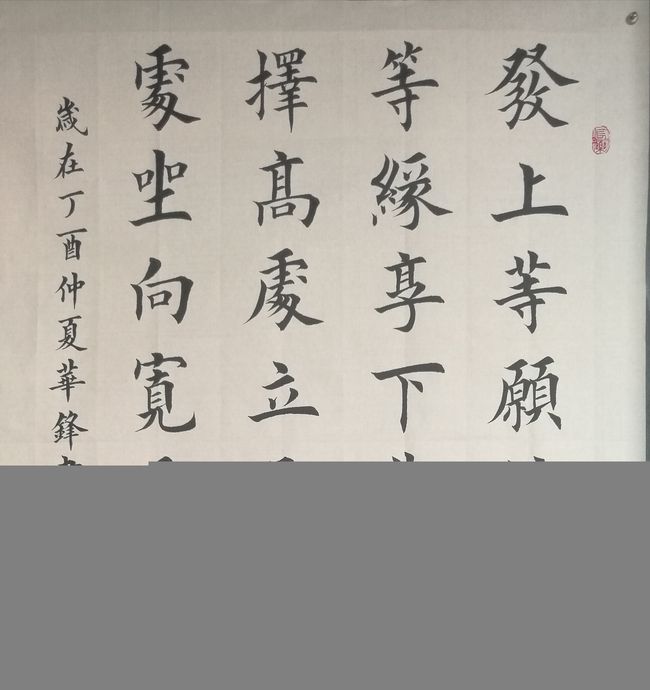 發上等願
等緣享下
擇高處立
處坐向寬
歲在丁酉仲夏華鋒